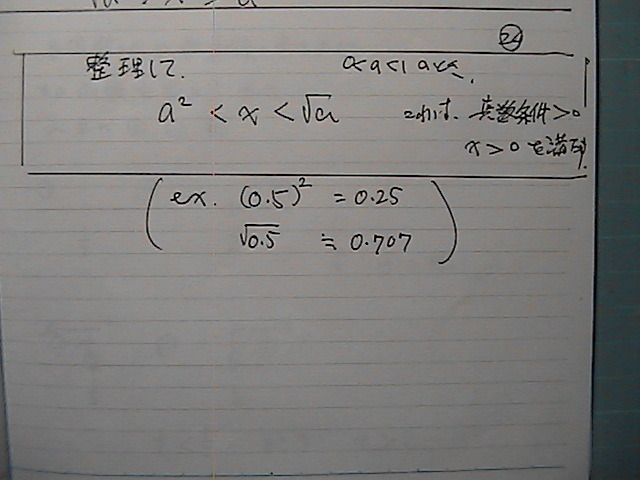 24
整理して 0<a<1 a<<
a² < x < √a これは、真数条件>0
x>0を満列
(ex. (0.5)² = 0.25
√0.5 ≒ 0.707)